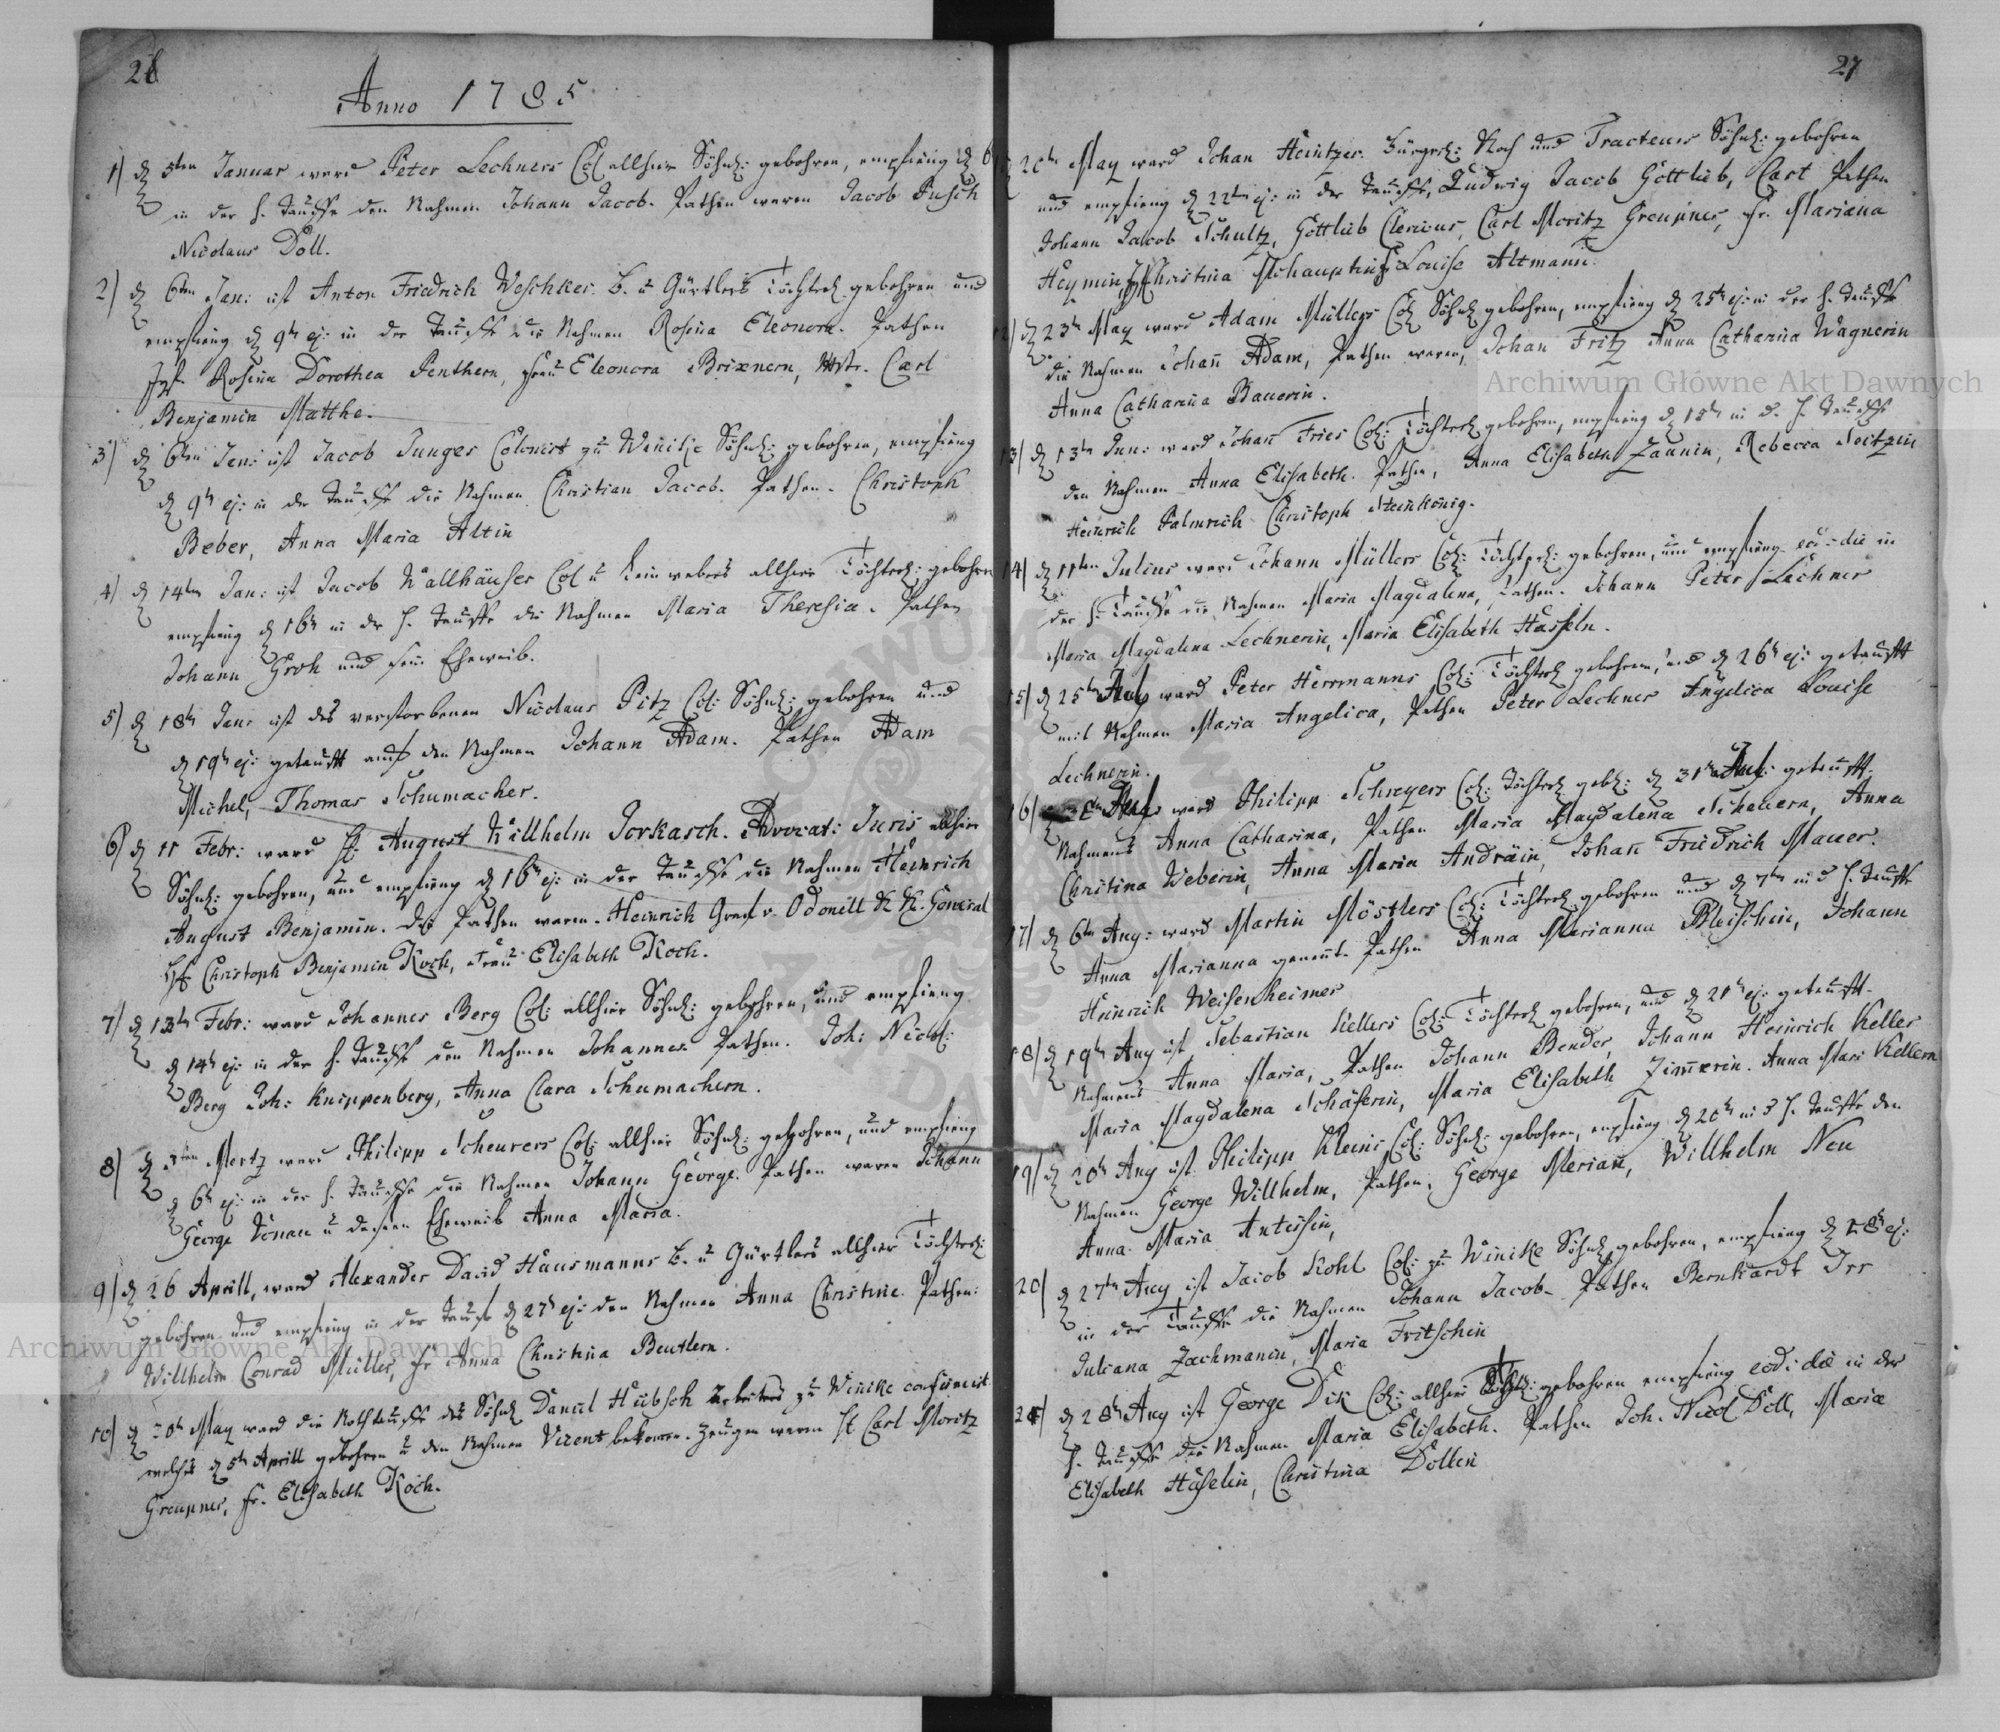 26
Anno 1785
1) d 5ten Januar ward Peter Lechners Col allhier Söhnl: gebohren, empfieng d 6
in der h. Tauffe den Nahmen Johann Jacob. Pathen waren Jacob Pusch
Nicolaus Doll.
2) d 6ten Jan: ist Anton Friedrich Weschker. B. u Gürtlers Töchterl gebohren und
empfieng d 9ten ej: in der Tauffe die Nahmen Rosina Eleonora. Pathen
Rosina Dorothea Penthern, Frau Eleonora Brixnern, Mstr. Carl
Benjamin Matthe.
3) d 6ten Jan: ist Jacob Junges Colonist zu Winike Söhnl: gebohren, empfieng
d 9ten ej: in der Tauffe die Nahmen Christian Jacob. Pathen. Christoph
Beber, Anna Maria Altin
4) d 14ten Jan: ist Jacob Wallhäuser Col u Leinwebers allhier Töchterl: gebohren
empfieng d 16ten in der h. Tauffe die Nahmen Maria Theresia. Pathen
Johann Groh und sein Eheweib.
5) d 18ten Jan: ist des verstorbenen Nicolaus Pitz Col: Söhnl: gebohren und
d 19ten ej: getaufft auf den Nahmen Johann Adam. Pathen Adam
Michel, Thomas Schumacher.
6) d 11 Febr: ward H. August Willhelm Jorkasch. Advocat: Juris allhier
Söhnl: gebohren, und empfieng d 16ten ej: in der Tauffe die Nahmen Heinrich
August Benjamin. Die Pathen waren. Heinrich Graf v. Odonell K. K. General
H Christoph Benjamin Koch, Frau Elisabeth Koch.
7) d 13ten Febr: ward Johannes Berg Col: allhier Söhnl: gebohren, und empfieng
d 14ten ej: in der h. Tauffe den Nahmen Johannes Pathen. Joh: Nicol:
Berg Joh: Knippenberg, Anna Clara Schumachern.
8) d 3ten Mertz ward Philipp Scheurers Col: allhier Söhnl: gebohren, und empfieng
d 6ten ej: in der h. Tauffe die Nahmen Johann George. Pathen waren Johann
George Donau u dessen Eheweib Anna Maria.
9) d 26 Aprill, ward Alexander David Hausmanns B. u Gürtlers allhier Töchterl:
gebohren und empfieng in der Tauffe d 27ten ej: den Nahmen Anna Christine. Pathen:
Willhelm Conrad Müller, Fr Anna Christina Beutlern.
10) d May ward die Nothtauffe des Söhnl Daniel Hübsch zu Winike confirmirt
welches d 5ten Aprill gebohren u den Nahmen Vicent bekomen. Zeugen waren H Carl Moritz
Greupner, Fr. Elisabeth Koch.
27
20ten May ward Johan Heintzer. Bürgerl: Koch und Tracteurs Söhnl: gebohren
und empfieng d 22ten ej: in der Tauffe, Ludwig Jacob Gottlieb, Carl Pathen
Johann Jacob Schultz, Gottlieb Clericus, Carl Moritz Greupner, Fr. Mariana
Heymin, Christina Schauptin, Louise Altmann.
12) d 23ten May ward Adam Müllers Col Söhnl gebohren, empfieng d 25ten ej: in der h. Tauffe
die Nahmen Johan Adam, Pathen waren, Johan Fritz Anna Catharina Wagnerin
Anna Catharina Bauerin.
13) d 13ten Jun: ward Johan Fries Col: Töchterl gebohren, empfieng d 15ten in d. h. Tauffe
den Nahmen Anna Elisabeth. Pathen, Anna Elisabeth Zaunin, Rebecca Seitzin
Heinrich Palmrich Christoph Steinkönig.
14) d 11ten Julius ward Johann Müllers Col: Töchterl: gebohren, und empfieng eod: die in
der h. Tauffe die Nahmen Maria Magdalena, Pathen. Johann Peter Lechner
Maria Magdalena Lechnerin, Maria Elisabeth Hasseln.
15) d 25ten ward Peter Herrmanns Col: Töchterl gebohren, und d 26ten ej: getaufft
mit Nahmen Maria Angelica, Pathen Peter Lechner Angelica Louise
Lechnerin.
16) ward Philipp Schreyers Col: Töchterl geb: d 31ten getaufft.
Nahmens Anna Catharina, Pathen Maria Magdalena Scheuern, Anna
Christina Weberin, Anna Maria Andräin, Johan Friedrich Mauer.
17) d 6ten Aug: ward Martin Möstlers Col: Töchterl gebohren und d 7ten in d h. Tauffe
Anna Marianna genennt. Pathen Anna Marianna Bleischin, Johann
Heinrich Weisenheimer
18) d 19ten Aug ist Sebastian Kellers Col: Töchterl gebohren, und d 21ten ej: getaufft.
Nahmens Anna Maria, Pathen Johann Bender, Johann Heinrich Keller
Maria Magdalena Schäferin, Maria Elisabeth Zimmerin. Anna Mari Kellern
19) d 20ten Aug ist Philipp Kleins Col: Söhnl: gebohren, empfieng d 20ten in d h. Tauffe den
Nahmen George Willhelm, Pathen, George Merian, Willhelm Neu
Anna Maria Antesin,
20) d 27ten Aug ist Jacob Kohl Col: zu Winike Söhnl gebohren, empfieng d 28ten ej:
in der Tauffe die Nahmen Johann Jacob. Pathen Bernhardt Irr
Juliana Zachmanin, Maria Fritschin
21) d 28ten Aug ist George Dik Col: allhier gebohren empfieng eod: die in der
h. Tauffe die Nahmen Maria Elisabeth. Pathen Joh. Nicol Doll, Maria
Elisabeth Häselin, Christina Dollin
Archiwum Główne Akt Dawnych
Archiwum Główne Akt Dawnych